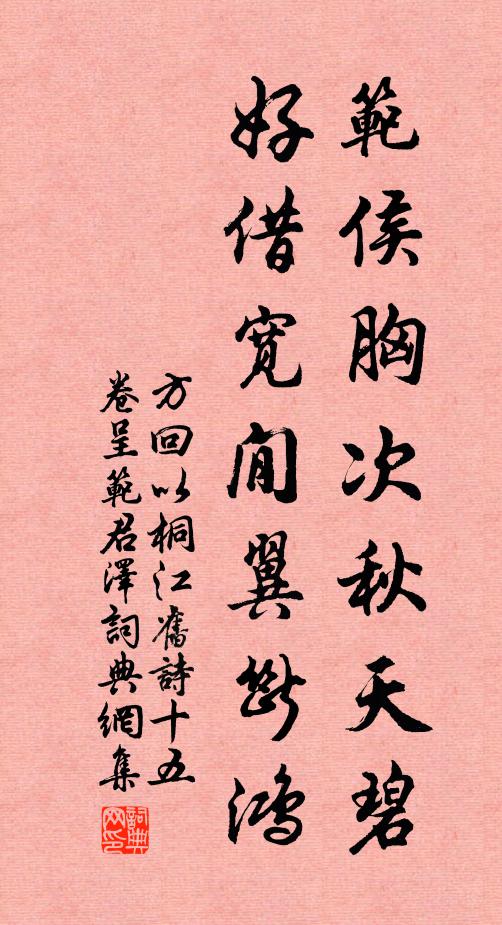 範侯胸次秋天碧
好借寬閒翼斷鴻
方回以桐江舊詩十五
卷呈範君澤詞典網集
詞典
网印